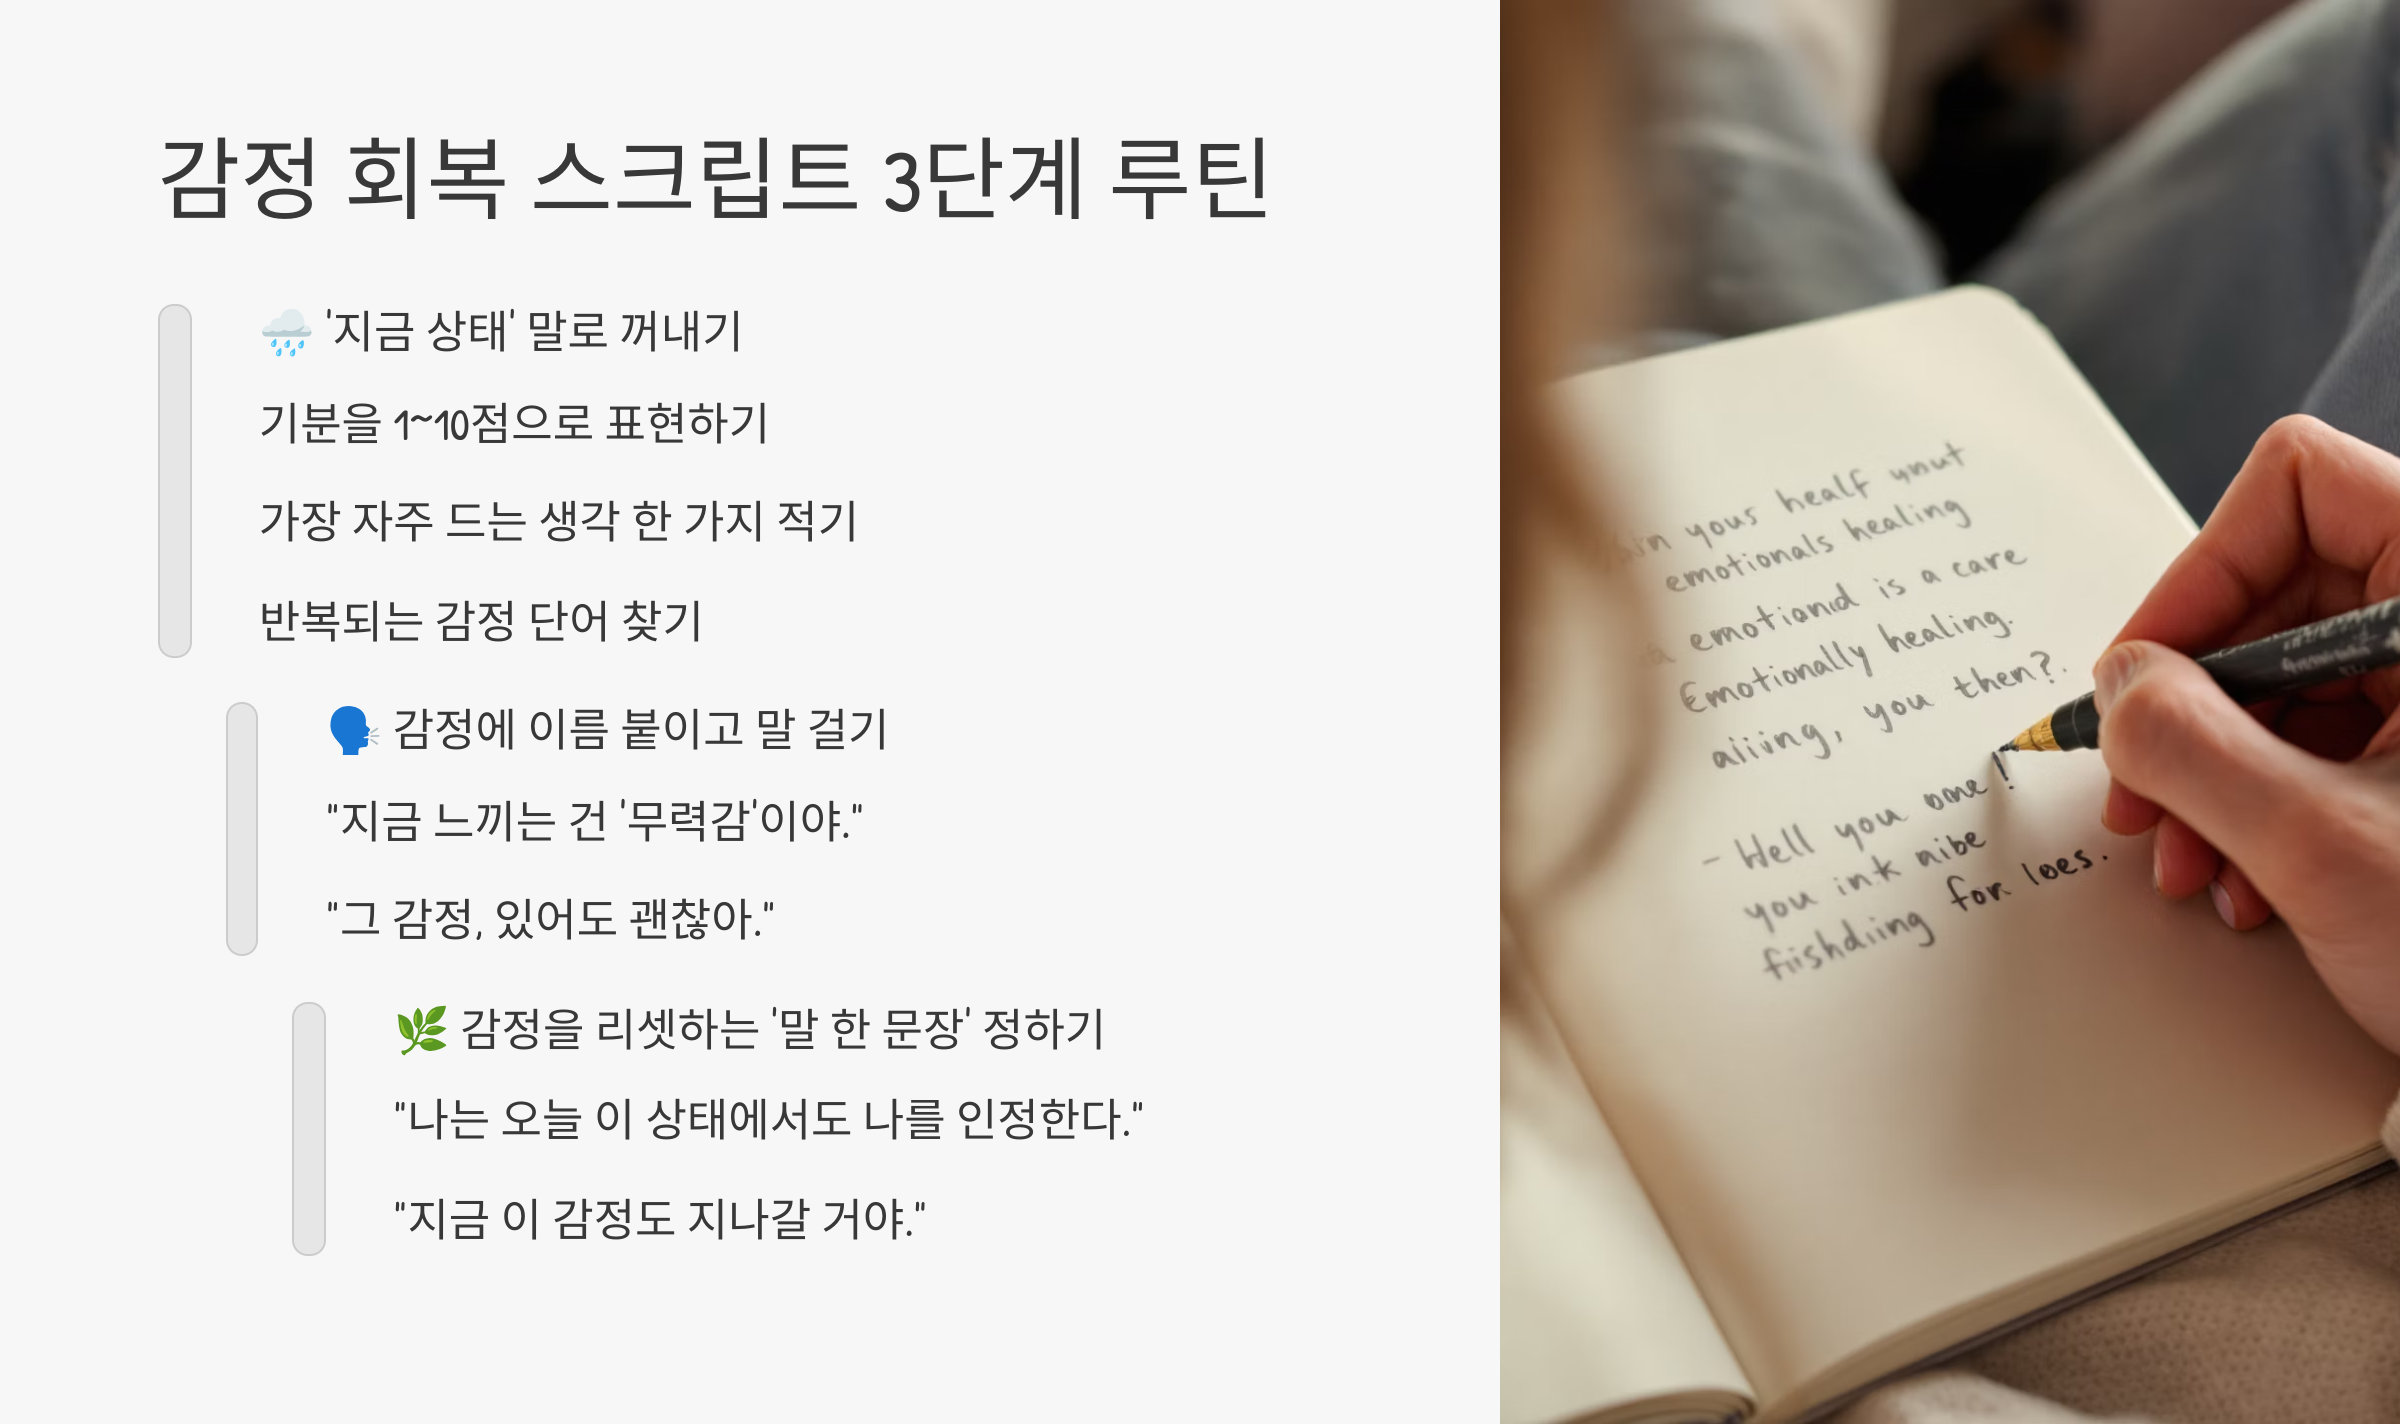 감정 회복 스크립트 3단계 루틴
🌧️ '지금 상태' 말로 꺼내기
기분을 1~10점으로 표현하기
가장 자주 드는 생각 한 가지 적기
반복되는 감정 단어 찾기
🗣️ 감정에 이름 붙이고 말 걸기
"지금 느끼는 건 '무력감'이야."
"그 감정, 있어도 괜찮아."
🌿 감정을 리셋하는 '말 한 문장' 정하기
"나는 오늘 이 상태에서도 나를 인정한다."
"지금 이 감정도 지나갈 거야."
yous healf
emotionals healing
is a care
Emotionally healing.
you then?.
- Well you !
you ink nibe
fiishdiing for loes.